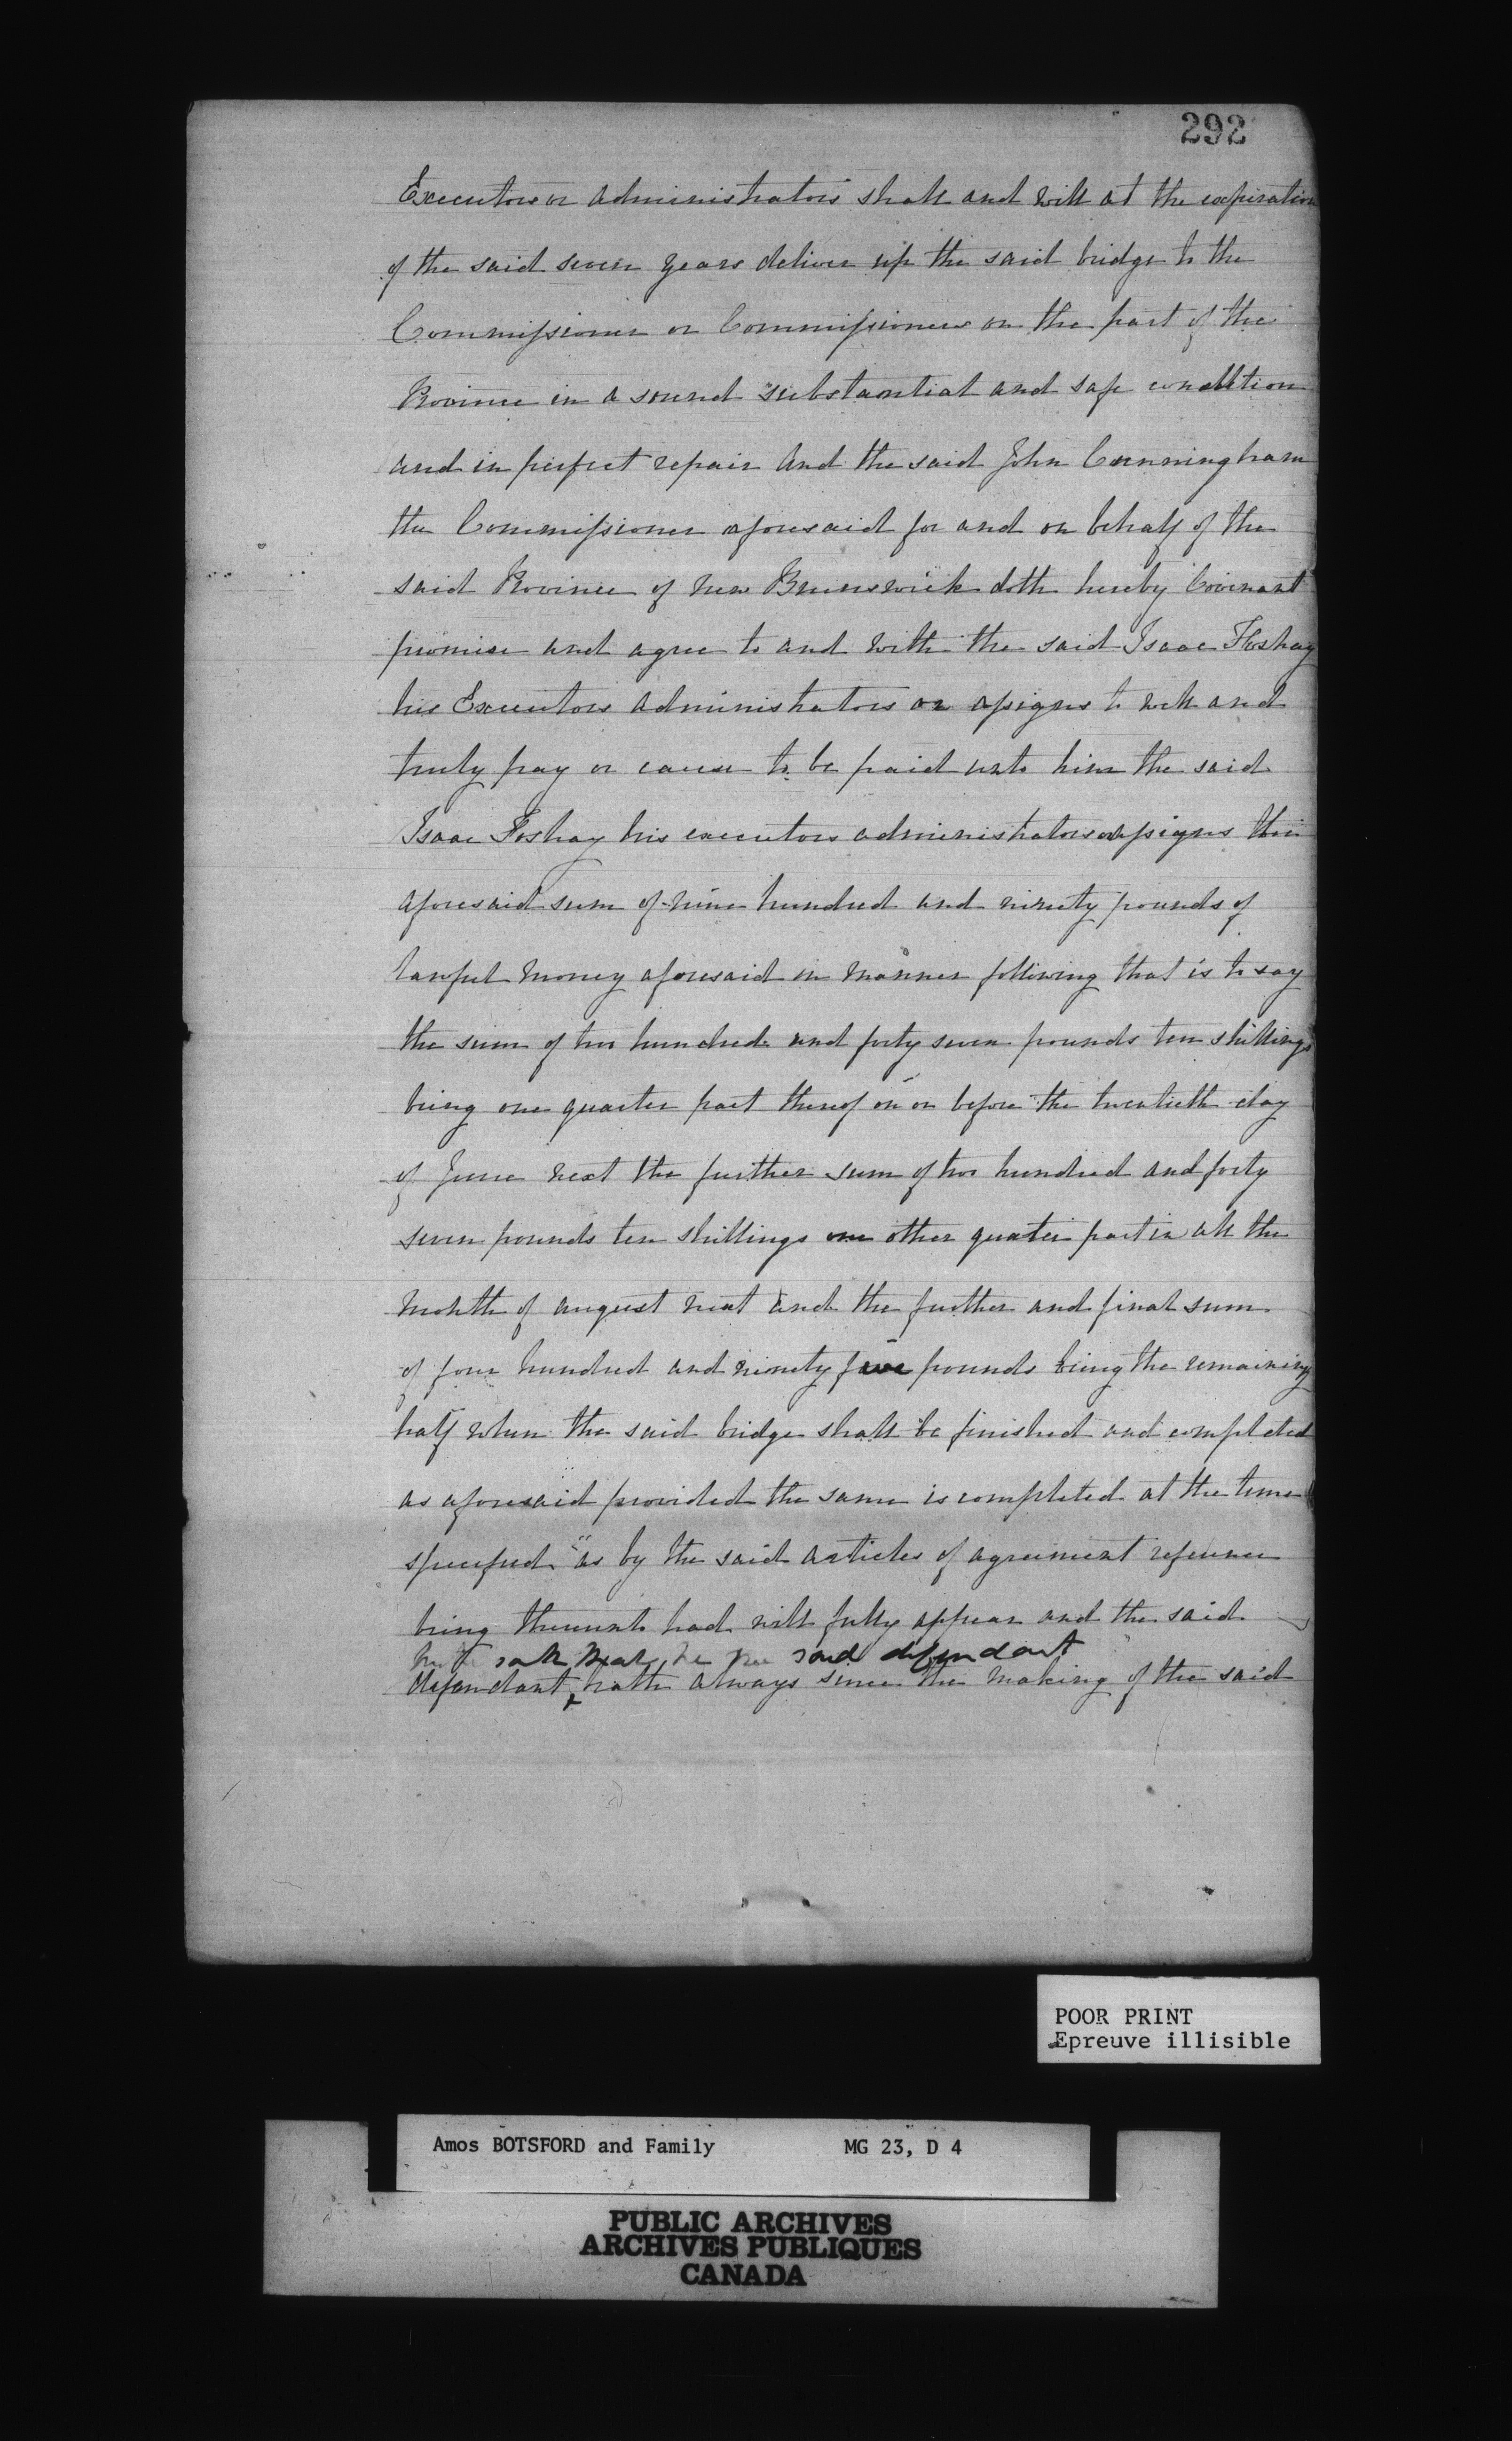 292
Executors or administrators shall and will at the expiration
of the said seven years deliver up the said bridge to the
Commissioner or Commissioners on the part of the
Province in a sound substantial and safe condition
and in perfect repair And the said John Cunningham
the Commissioner aforesaid for and on behalf of the
said Province of New Brunswick doth hereby Covenant
promise and agree to and with the said Isaac Foshay
his Executors administrators or assigns to well and
truly pay or cause to be paid unto him the said
Isaac Foshay his executors administrators assigns the
aforesaid sum of nine hundred and ninety pounds of
lawful money aforesaid in manner following that is to say
the sum of two hundred and forty seven pounds ten shillings
being one quarter part thereof on or before the twentieth day
of June next the further sum of two hundred and forty
seven pounds ten shillings one other quarter part in all the
month of august next and the further and final sum
of four hundred and ninety five pounds being the remaining
half when the said bridge shall be finished and completed
as aforesaid provided the same is completed at the time
specified" as by the said articles of agreement reference
being thereunto had will fully appear and the said
saith that he the said defendant
defendant hath always since the making of the said
POOR PRINT
Epreuve illisible
Amos BOTSFORD and Family MG 23, D 4
PUBLIC ARCHIVES
ARCHIVES PUBLIQUES
CANADA